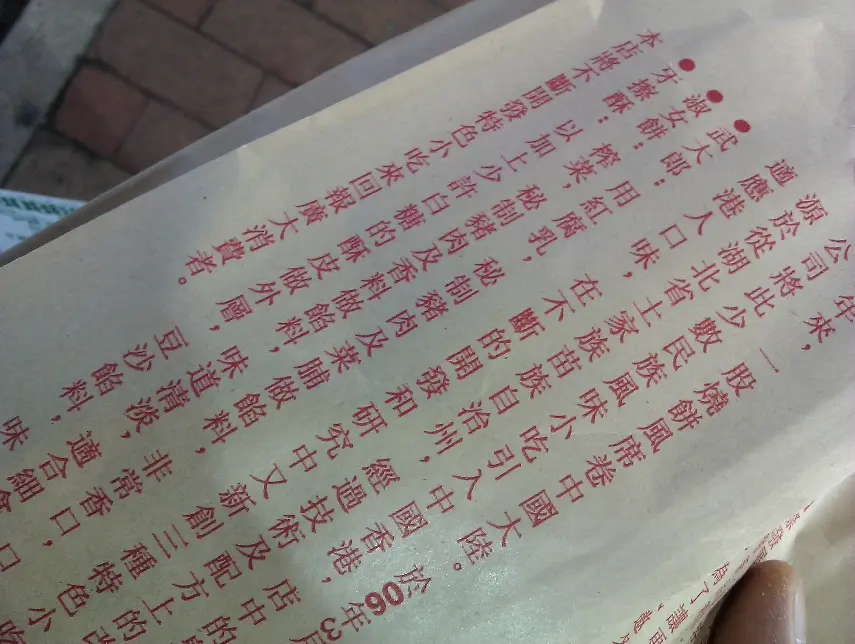 年來,一股燒餅風席卷中國大陸。於90年3月
公司將此少數民族風味小吃引入中國香港,店中的
源於從湖北省土家族苗族自治州,經過技術及配方上的
適應港人口味,在不斷的開發和研究中又新創三種特色小吃
●武大郎:用紅腐乳,秘制豬肉及菜脯做餡料,非常香口,
●淑女餅:榨菜,秘制豬肉及香料做餡料,味道清淡,適合細
●牙擦酥:以加上少許白糖的酥皮做外層,豆沙餡料,味
本店將不斷開發特色小吃來回報廣大消費者。